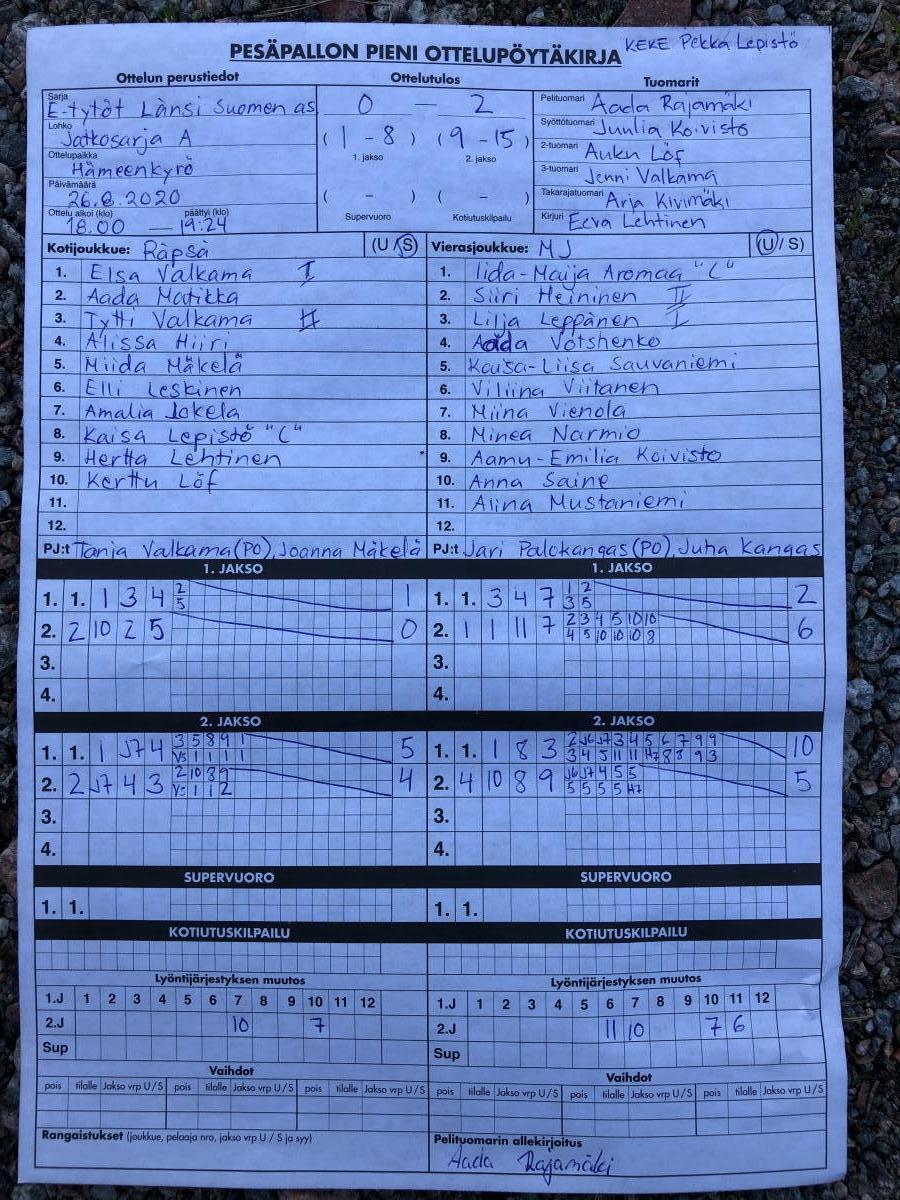 KEKE Pekka Lepistö
PESÄPALLON PIENI OTTELUPÖYTÄKIRJA
Ottelun perustiedot Ottelutulos Tuomarit
Sarja E-tytöt Länsi Suomen as
0 — 2
Pelituomari Aada Rajamäki
Lohko Jatkosarja A
(1 - 8) (9 - 15)
1. jakso 2. jakso
Syöttötuomari Juulia Koivisto
Ottelupaikka Hämeenkyrö
2-tuomari Auku Löf
3-tuomari Jenni Valkama
Päivämäärä 26.8.2020
( - ) ( - )
Supervuoro Kotiutuskilpailu
Takarajatuomari Arja Kivimäki
Ottelu alkoi (klo) päättyi (klo)
18.00 — 19:24
Kirjuri Eeva Lehtinen
Kotijoukkue: Räpsä (U/S) Vierasjoukkue: MJ (U/S)
1. Elsa Valkama I 1. Iida-Maija Aromaa "C"
2. Aada Matikka 2. Siiri Heininen II
3. Tytti Valkama II 3. Lilja Leppänen I
4. Alissa Hiiri 4. Aada Votshenko
5. Miida Mäkelä 5. Kaisa-Liisa Sauvaniemi
6. Elli Leskinen 6. Viliina Viitanen
7. Amalia Jokela 7. Miina Vienola
8. Kaisa Lepistö "C" 8. Minea Narmio
9. Hertta Lehtinen 9. Aamu-Emilia Koivisto
10. Kerttu Löf 10. Anna Saine
11. 11. Alina Mustaniemi
12. 12.
PJ:t Tanja Valkama (PO), Joanna Mäkelä PJ:t Jari Palokangas (PO), Juha Kangas
1. JAKSO 1. JAKSO
1. 1. 1 3 4 2 1 1. 1. 3 4 7 1 2 2
5 3 5
2. 2 10 2 5 0 2. 1 1 11 7 2 3 4 5 10 10 6
4 5 10 10 10 8
3. 3.
4. 4.
2. JAKSO 2. JAKSO
1. 1. 1 J7 4 3 5 8 9 1 5 1. 1. 1 8 3 2 J6 J7 3 4 5 6 7 9 9 10
VS 1 1 1 1 3 4 5 11 11 H7 8 8 9 3
2. 2 J7 4 3 2 10 8 9 4 2. 4 10 8 9 J6 J7 4 5 5 5
VS 1 1 2 5 5 5 5 H7
3. 3.
4. 4.
SUPERVUORO SUPERVUORO
1. 1. 1. 1.
KOTIUTUSKILPAILU KOTIUTUSKILPAILU
Lyöntijärjestyksen muutos Lyöntijärjestyksen muutos
1.J 1 2 3 4 5 6 7 8 9 10 11 12 1.J 1 2 3 4 5 6 7 8 9 10 11 12
2.J 10 7 2.J 11 10 7 6
Sup Sup
Vaihdot Vaihdot
pois tilalle Jakso vrp U/S pois tilalle Jakso vrp U/S pois tilalle Jakso vrp U/S pois tilalle Jakso vrp U/S pois tilalle Jakso vrp U/S pois tilalle Jakso vrp U/S
Rangaistukset (joukkue, pelaaja nro, jakso vrp U / S ja syy) Pelituomarin allekirjoitus
Aada Rajamäki